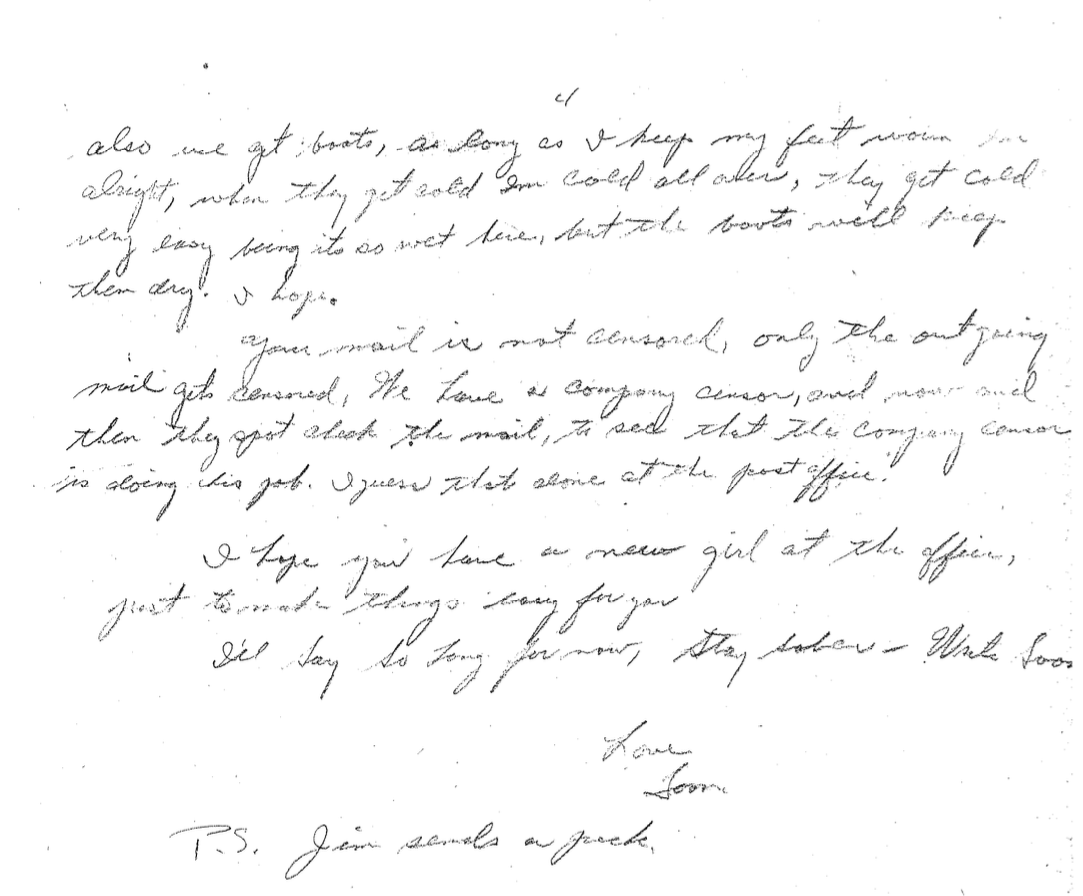 4
also we get boots, as long as I keep my feet warm Im
alright, when they get cold Im cold all over, they get cold
very easy being its so wet here, but the boots will keep
them dry. I hope.
Your mail is not censored, only the outgoing
mail gets censored, We have a company censor, and now and
then they spot check the mail, to see that the company censor
is doing his job. I guess that done at the post office.
I hope you have a new girl at the office,
just to make things easy for you
I'll say so long for now, Stay sober – Write Soon
Love
P.S. Jim sends a peck.